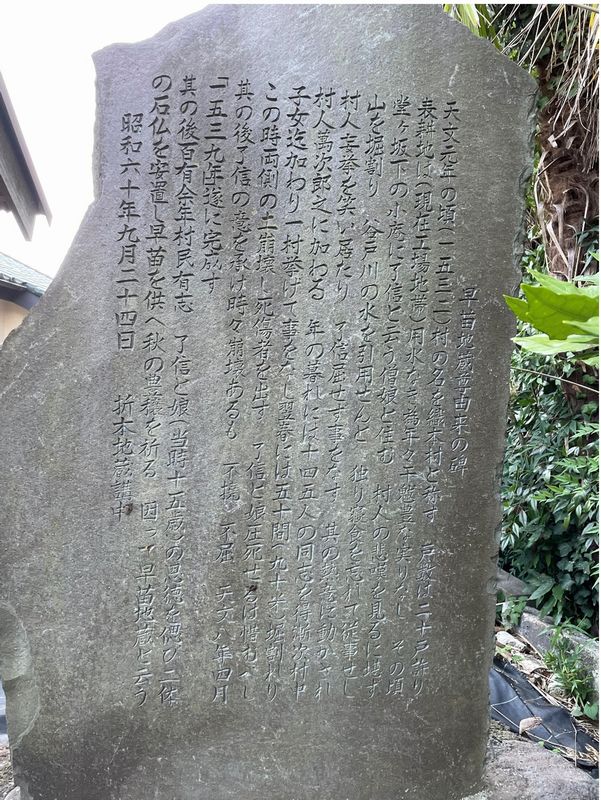 早苗地蔵尊由来の碑
天文元年の頃(一五三二)村の名を織本村と称す 戸数は二十戸許り
表耕地は(現在工場地帯)用水なき為年々干魃豊かな実りなし その頃
堂ヶ坂下の小庵に了信と云う僧娘と住む 村人の悲嘆を見るに堪す
山を堀割り 谷戸川の水を引用せんと 独り寝食を忘れて従事せし
村人妄挙を笑い居たり 了信屈せす事をなす 其の熱意に動かされ
村人萬次郎之に加わる 年の暮れには十四五人の同志を得漸次村中
子女迄加わり一村挙げて事をなし翌春には五十間(九十米)堀割れり
この時両側の土崩壊し死傷者を出す 了信と娘圧死せるは惜むへし
其の後了信の意を承け時々崩壊あるも 不撓 不屈 天文八年四月
「一五三九年遂に完成す
其の後百有余年村民有志 了信と娘(当時十五歳)の恩徳を偲び二体
の石仏を安置し早苗を供へ秋の豊穣を祈る 因って早苗地蔵と云う
昭和六十年九月二十四日 折本地蔵講中